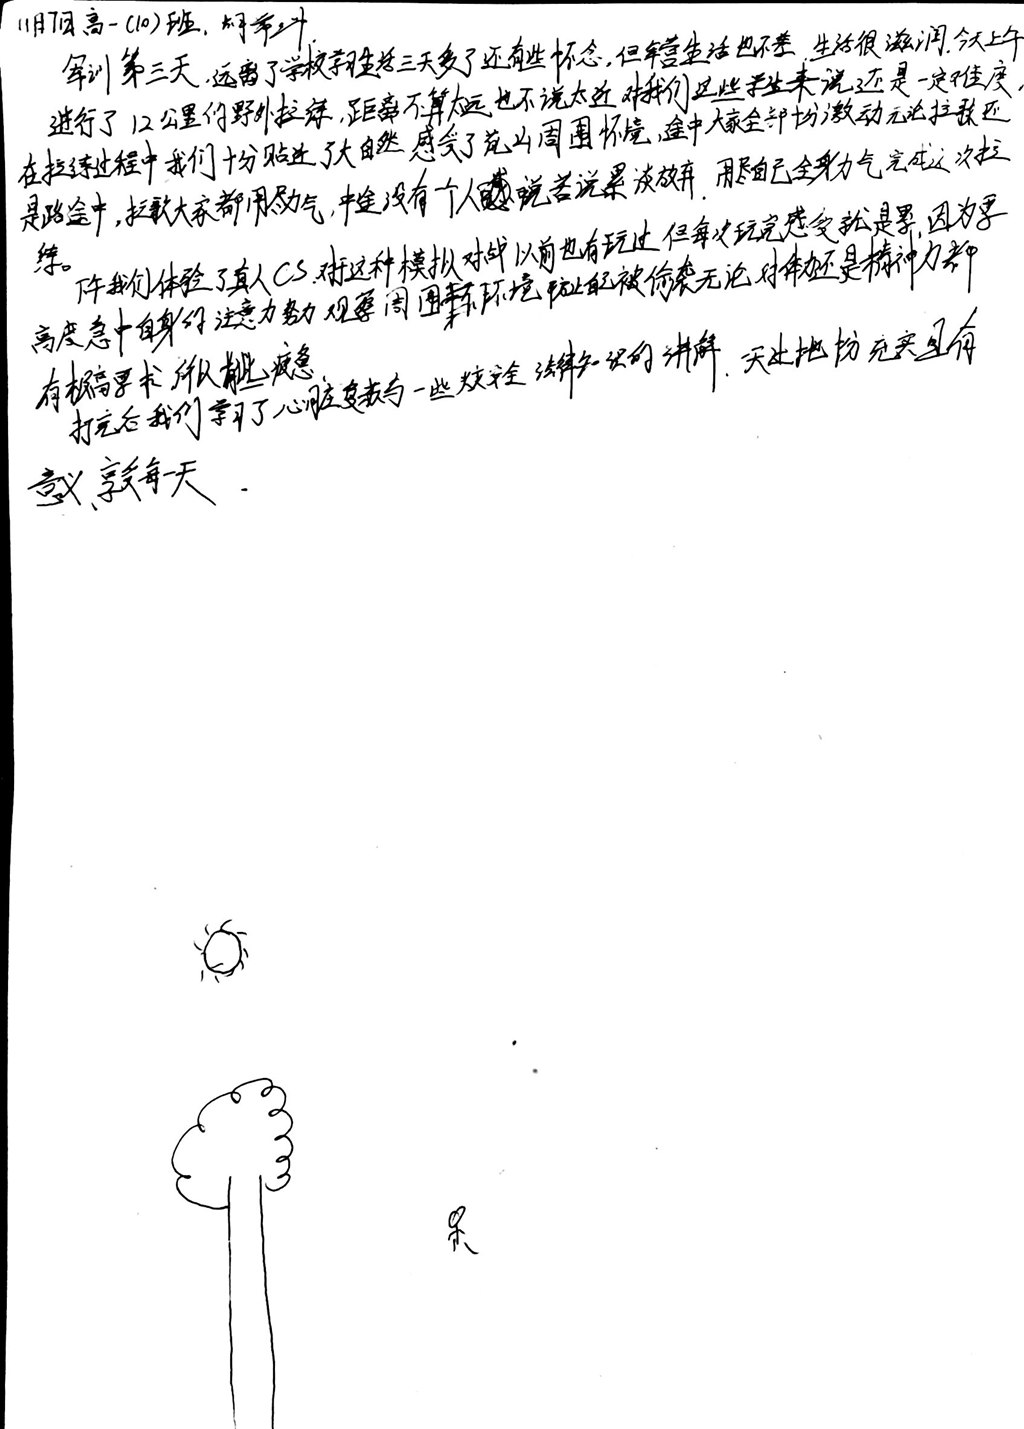 11月7日高一(10)班,
军训第三天,远离了学校学习生活三天多了还有些怀念,但军营生活也不差,生活很滋润.今天上午
进行了12公里的野外拉练,距离不算太远也不说太近对我们这些学生来说还是一定难度,
在拉练过程中我们十分贴近了大自然感受了 山周围怀境,途中大家全部十分激动无论拉歌还
是路途中,拉歌大家都用尽力气,中途没有个人 说苦说累谈放弃.用尽自己全身力气完成这次拉
练。
下午我们体验了真人CS.对于这种模拟对战以前也有玩过但每次玩完感受就是累,因为要
高度急中自身的注意力努力观察周围 环境防止自己被偷袭无论对体力还是精神力都
有极高要求所以 疲惫
打完后我们学习了心肺复苏与一些 安全法律知识的讲解.一天处地方充实且有
意义、享受每一天.